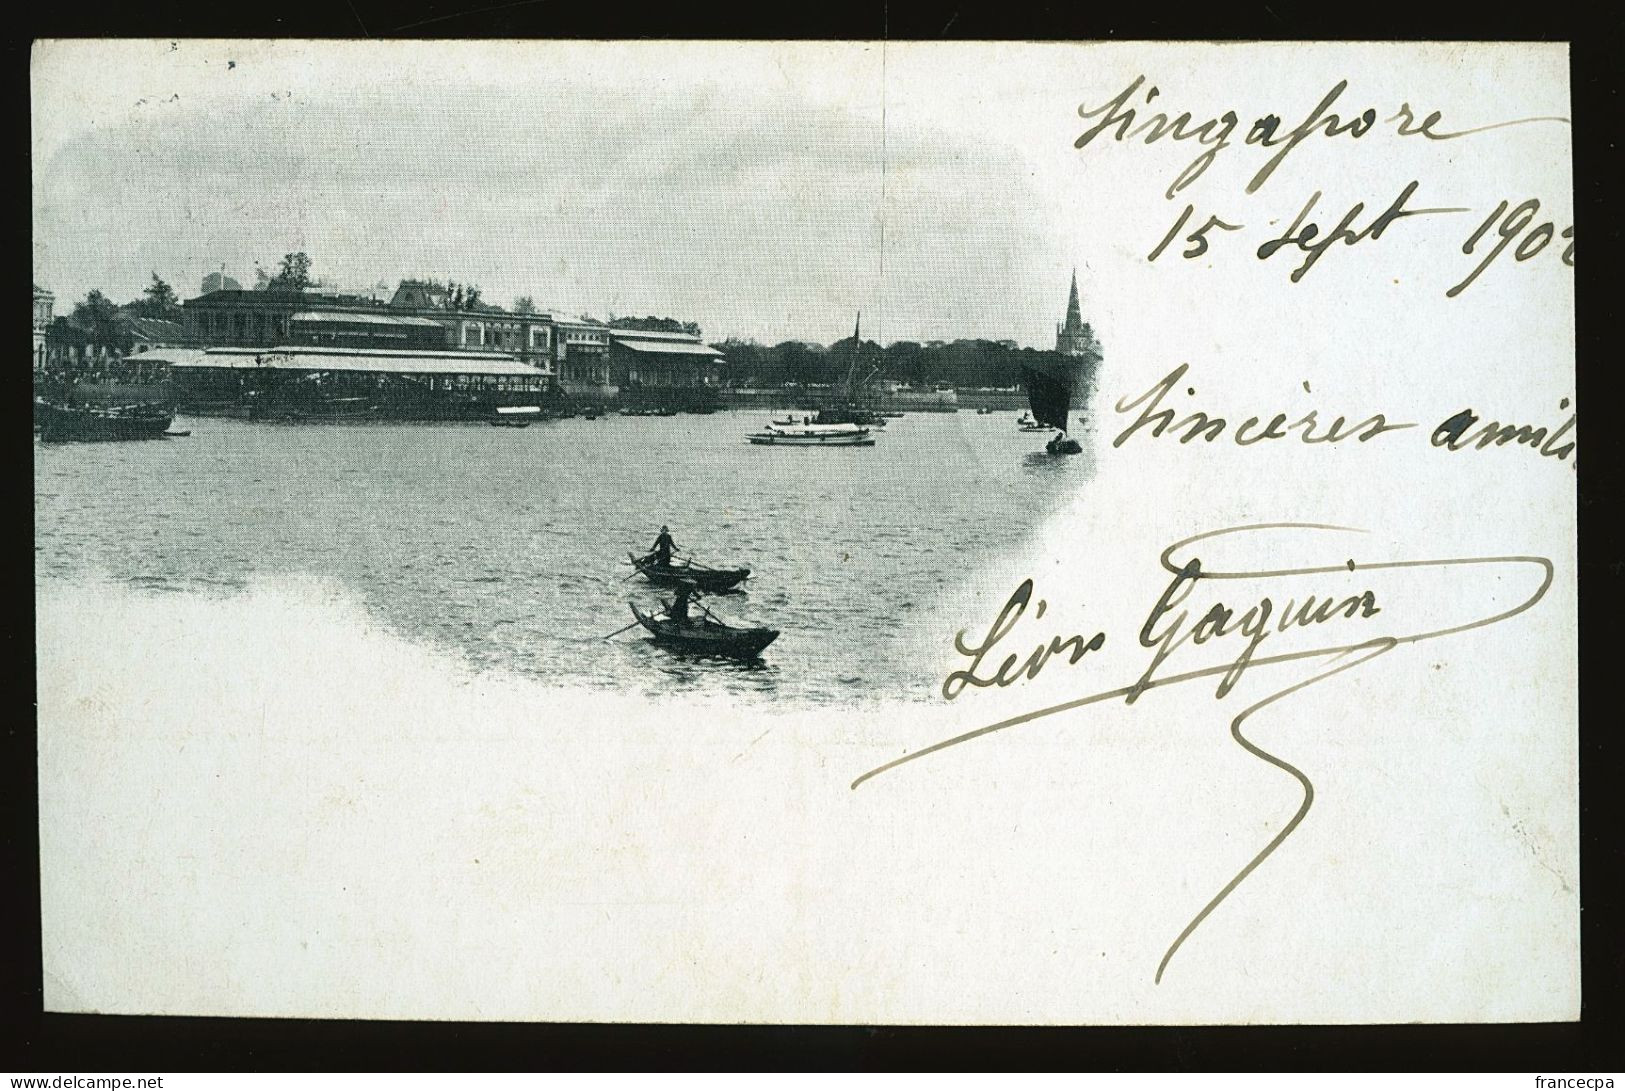 Singapore
15 Sept 190
Sincères amiti
Léon Gaguin
www.delcampe.net
francecpa